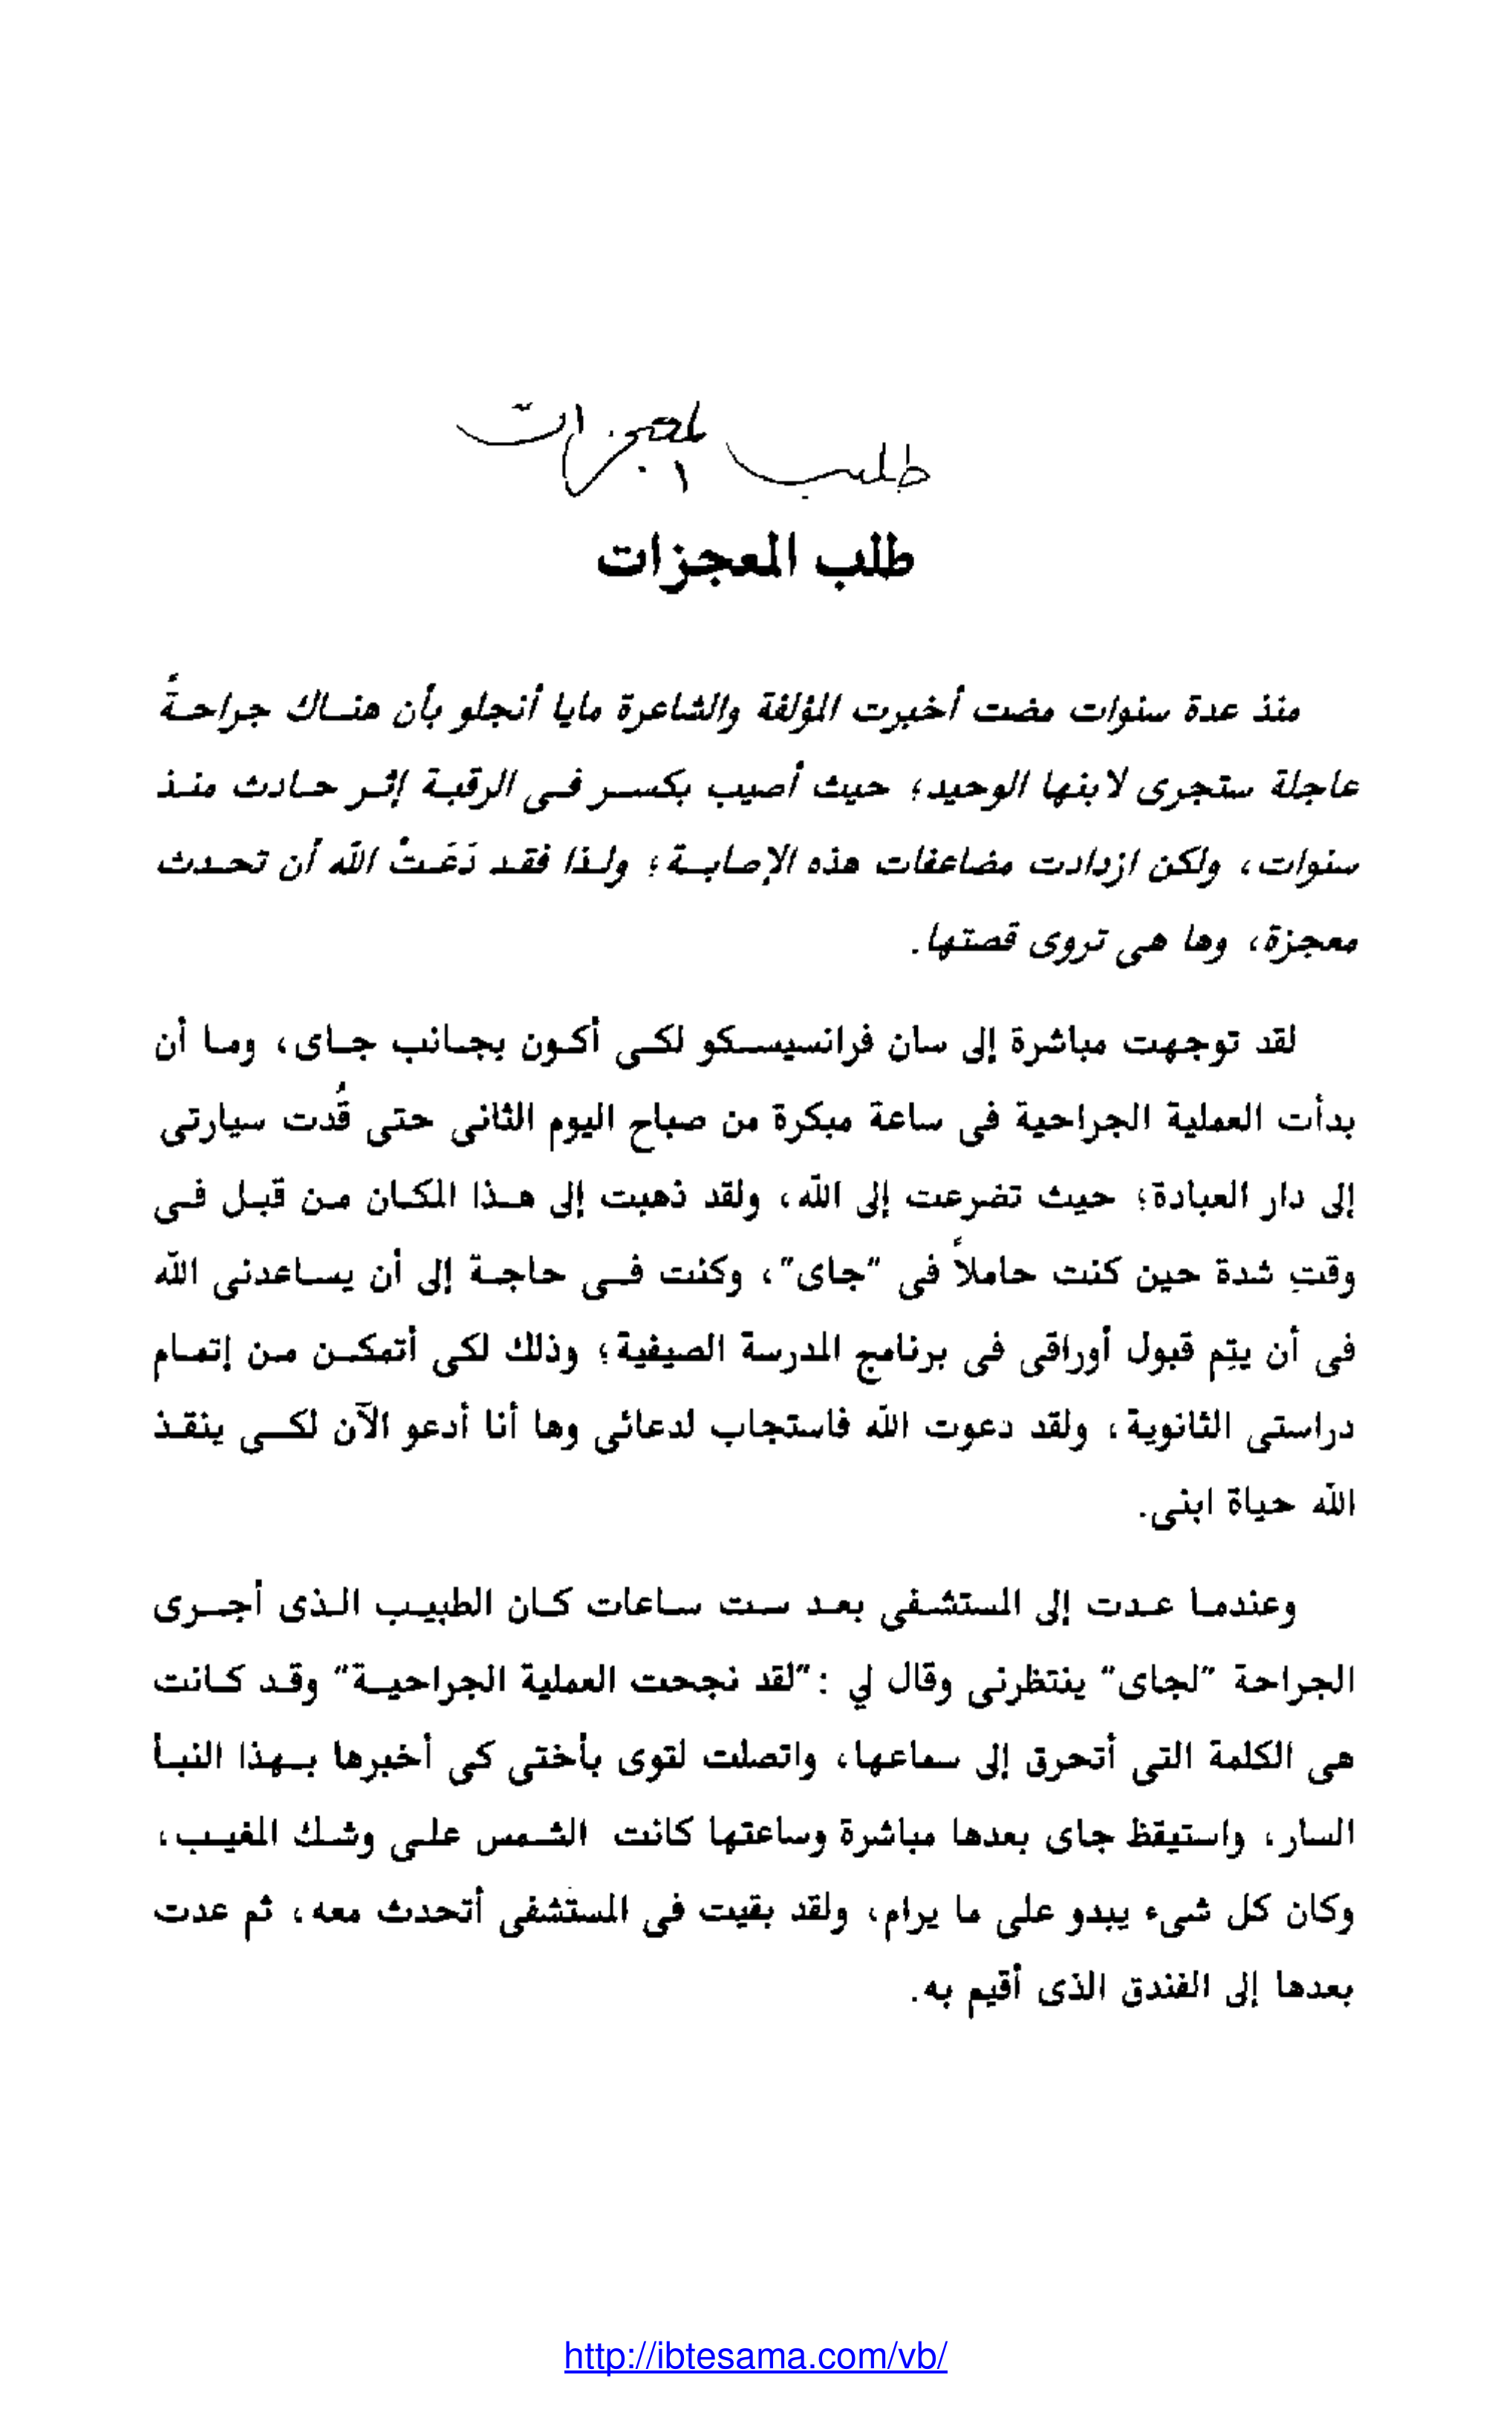 طلب المعجزات
طلب المعجزات
منذ عدة سنوات مضت أخبرت المؤلفة والشاعرة مايا أنجلو بأن هنـاك جراحـةً
عاجلة ستجرى لابنها الوحيد؛ حيث أصيب بكسـر فـى الرقبـة إثـر حـادث منـذ
سنوات، ولكن ازدادت مضاعفات هذه الإصابـة؛ ولـذا فقـد دَعَـتْ الله أن تحـدث
معجزة، وها هى تروى قصتها.
لقد توجهت مباشرة إلى سان فرانسيسـكو لكـى أكـون بجـانب جـاى، ومـا أن
بدأت العملية الجراحية فى ساعة مبكرة من صباح اليوم الثانى حتى قُدت سيارتى
إلى دار العبادة؛ حيث تضرعت إلى الله، ولقد ذهبت إلى هـذا المكـان مـن قبـل فـى
وقتِ شدة حين كنت حاملاً فى "جاى"، وكنت فـى حاجـة إلى أن يسـاعدنى الله
فى أن يتِم قبول أوراقى فى برنامج المدرسة الصيفية؛ وذلك لكى أتمكـن مـن إتمـام
دراستى الثانوية، ولقد دعوت الله فاستجاب لدعائى وها أنا أدعو الآن لكـى ينقـذ
الله حياة ابنى.
وعندمـا عـدت إلى المستشـفى بعـد سـت سـاعات كـان الطبيـب الـذى أجـرى
الجراحة "لجاى" ينتظرنى وقال لي :"لقد نجحت العملية الجراحيـة" وقـد كـانت
هى الكلمة التى أتحرق إلى سماعها، واتصلت لتوى بأختى كى أخبرها بـهذا النبـأ
السار، واستيقظ جاى بعدها مباشرة وساعتها كانت الشـمس علـى وشـك المغيـب،
وكان كل شىء يبدو على ما يرام، ولقد بقيت فى المستشفى أتحدث معه، ثم عدت
بعدها إلى الفندق الذى أقيم به.
http://ibtesama.com/vb/